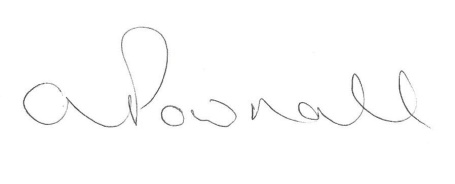 a Pownall